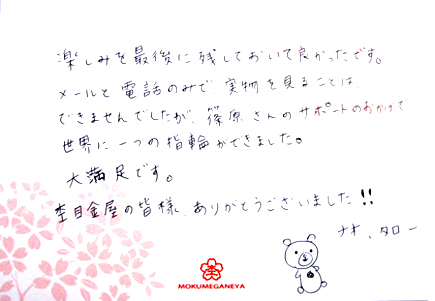 楽しみを最後に残しておいて良かったです。
メールと電話のみで、実物を見ることは、
できませんでしたが、篠原さんのサポートのおかげで
世界に一つの指輪ができました。
大満足です。
杢目金屋の皆様、ありがとうございました!!
ナオ、タロー
MOKUMEGANEYA